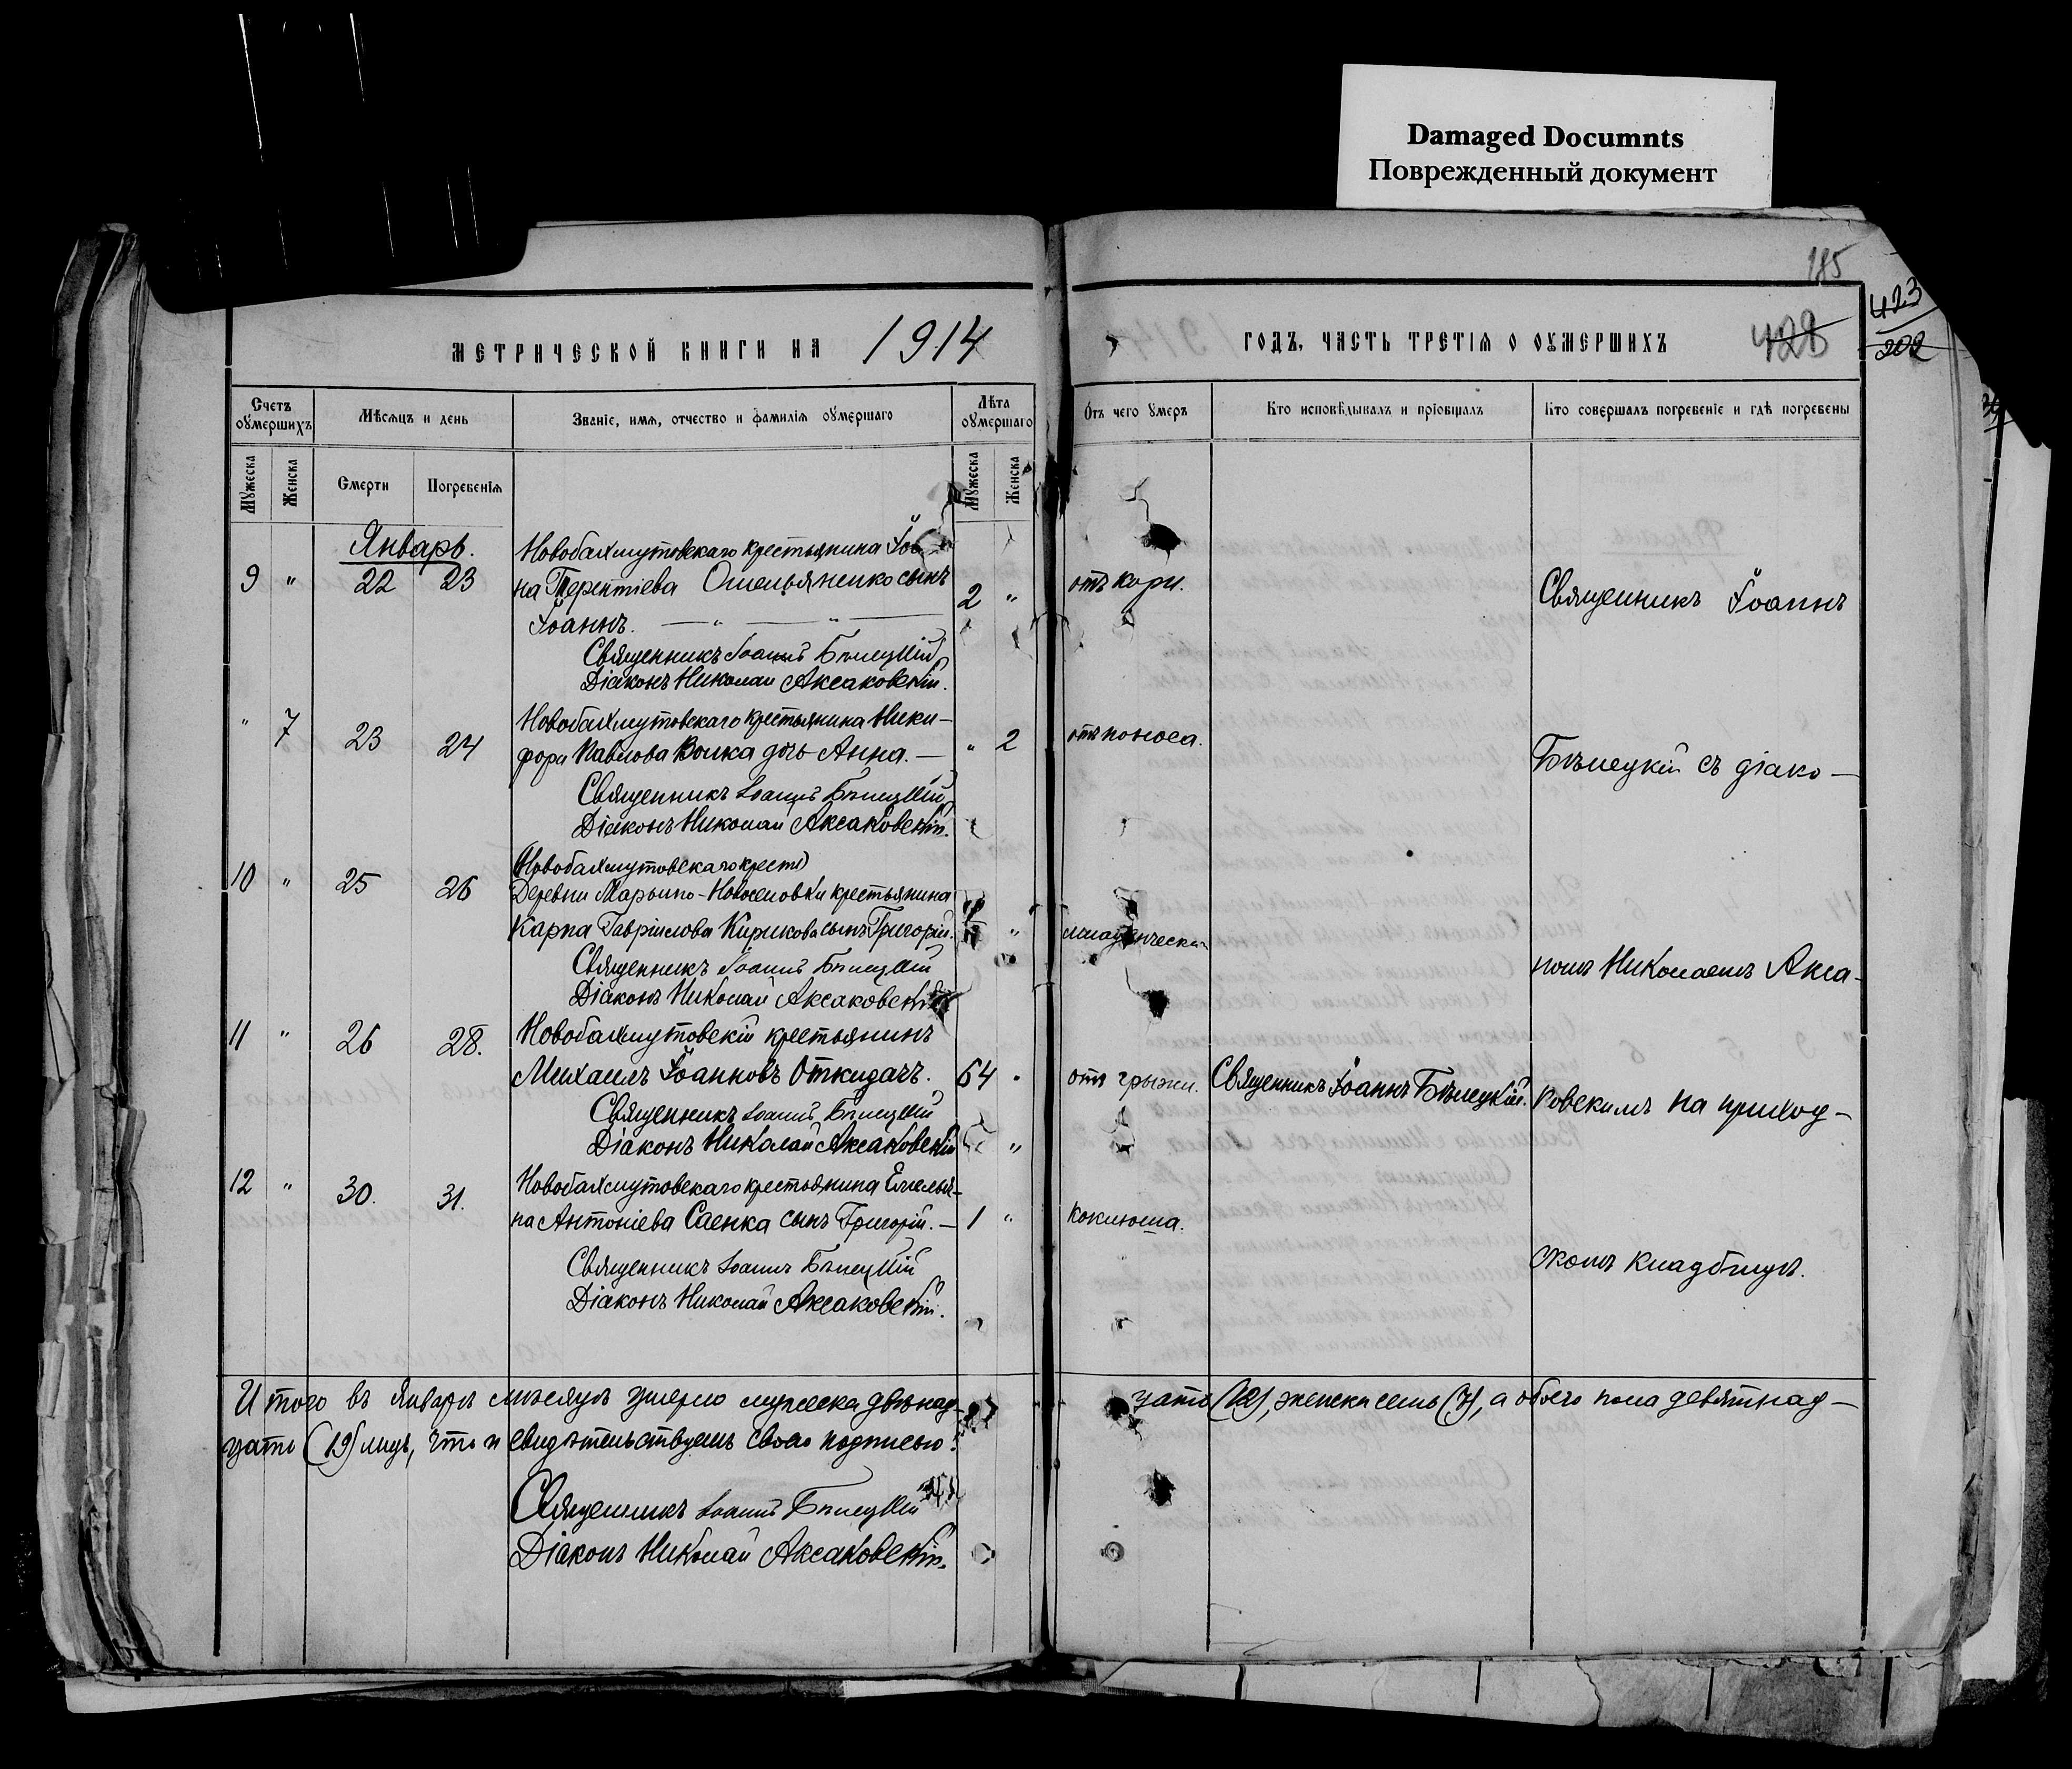 Damaged Documnts
Поврежденный документ
185
423
202
МЕТРИЧЕСКОЙ КНИГИ НА 1914
ГОДЪ, ЧАСТЬ ТРЕТІЯ О ОУМЕРШИХЪ
428
Счетъ оумершихъ
Мѣсяцъ и день
Званіе, имя, отчество и фамилія оумершаго
Лѣта оумершаго
Отъ чего умеръ
Кто исповѣдывалъ и пріобщалъ
Кто совершалъ погребеніе и гдѣ погребены
Мужеска
Женска
Смерти
Погребенія
Мужеска
Женска
Январь.
Новобахмутовскаго крестьянина Іоа
9 " 22 23 на Терентіева Омельяненко сынъ 2 " отъ кори. Священникъ Іоаннъ
Іоаннъ. — " — " —
Священникъ Іоаннъ Бѣлецкій
Діаконъ Николай Аксаковскій.
" 7 23 24 Новобахмутовскаго крестьянина Ники-
фора Павлова Волка дочь Анна. — " 2 отъ поноса. Бѣлецкій съ діако-
Священникъ Іоаннъ Бѣлецкій
Діаконъ Николай Аксаковскій.
(Новобахмутовскаго крест)
10 " 25 26 Деревни Марьино-Новоселовки крестьянина
Карпа Гавріилова Кирикова сынъ Григорій. " младенческая
Священникъ Іоаннъ Бѣлецкій номъ Николаемъ Акса-
Діаконъ Николай Аксаковскій
11 " 26 28. Новобахмутовскій крестьянинъ
Михаилъ Іоанновъ Откидачъ. 64 " отъ грыжи. Священникъ Іоаннъ Бѣлецкій. ковскимъ на приход-
Священникъ Іоаннъ Бѣлецкій
Діаконъ Николай Аксаковскій "
12 " 30. 31. Новобахмутовскаго крестьянина Емелья-
на Антоніева Саенка сынъ Григорій. — 1 " коклюша.
Священникъ Іоаннъ Бѣлецкій скомъ кладбищѣ.
Діаконъ Николай Аксаковскій.
Итого въ Январѣ мѣсяцѣ умерло мужеска двѣнад-
цать (12), женска семь (7), а обоего пола девятнад-
цать (19) лицъ, что и свидѣтельствуемъ своею подписью:
Священникъ Іоаннъ Бѣлецкій
Діаконъ Николай Аксаковскій.